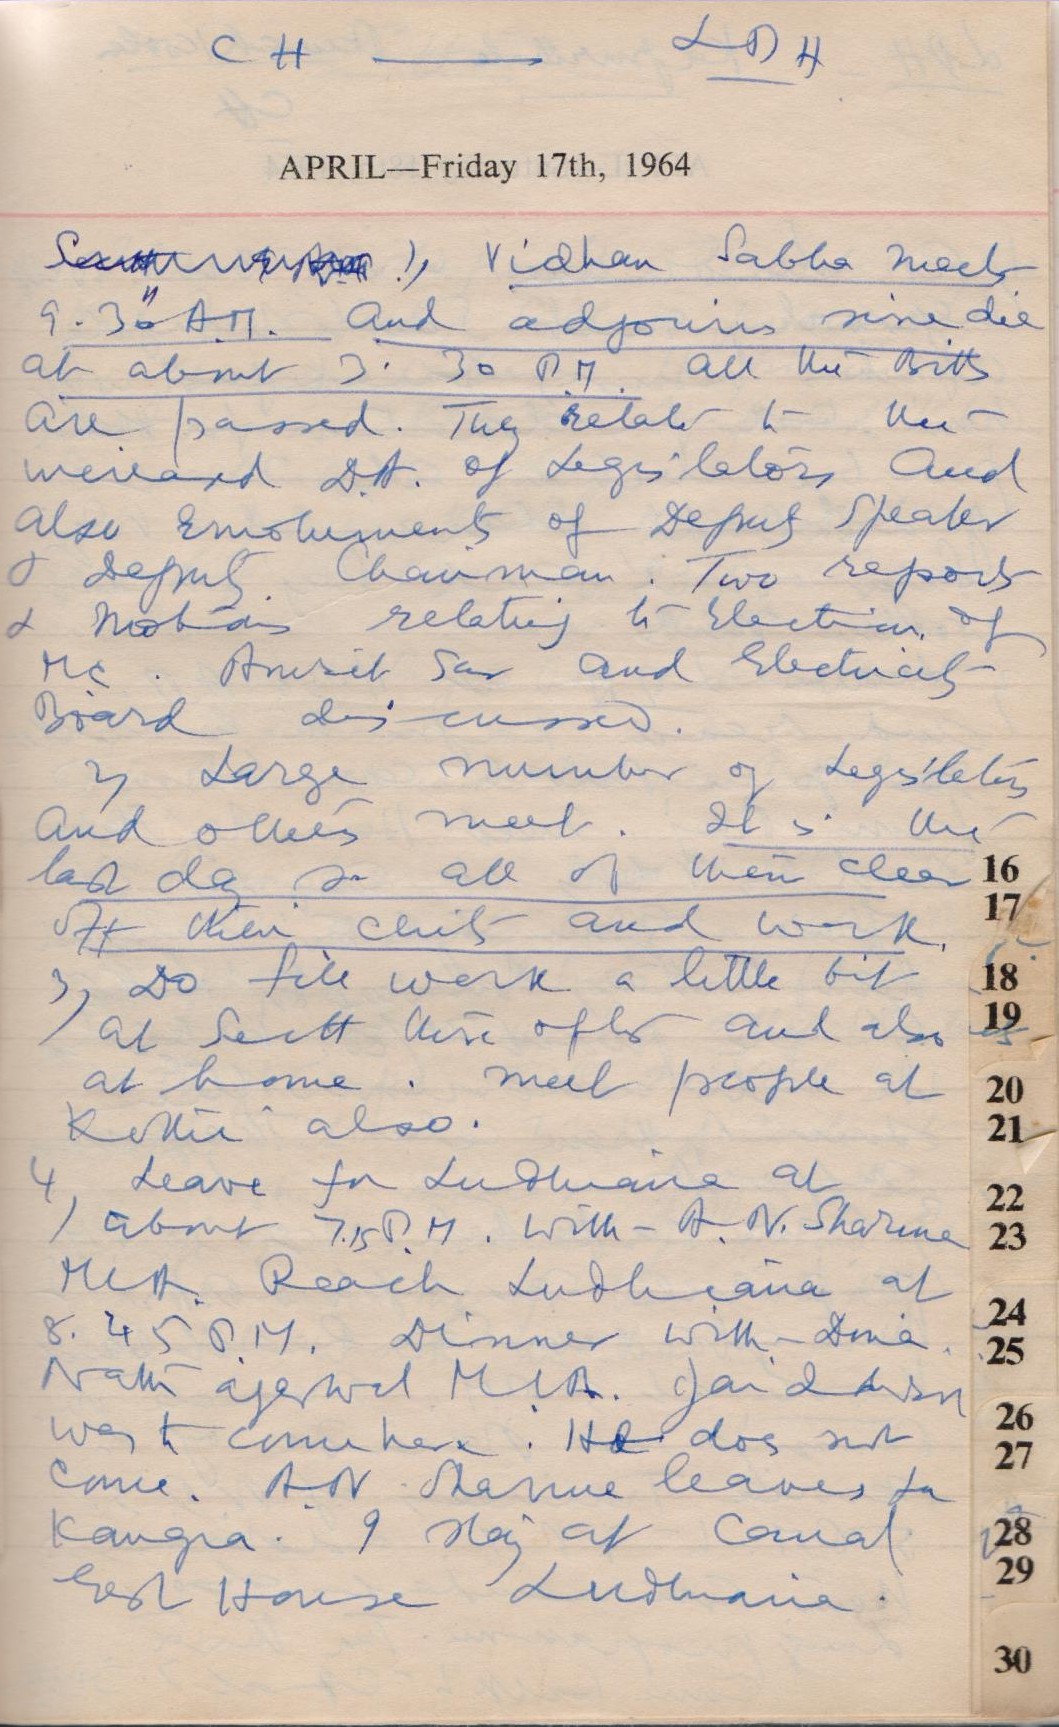 CH — LDH
APRIL—Friday 17th, 1964
1, Vidhan Sabha meets
9.30 A.M. and adjourns sine die
at about 3.30 P.M. All the Bills
are passed. They relate to the
increased D.A. of Legislators and
also Emoluments of Deputy Speaker
& Deputy Chairman. Two reports
& motions relating to Election of
MC. Amritsar and Electricity
Board discussed.
2, Large number of Legislators
and others meet. It is the
last day so all of them clear
off their chits and work.
3, Do file work a little bit
at Sectt here after and also
at home. Meet people at
Kothi also.
4, Leave for Ludhiana at
about 7.15 P.M. with A.N. Sharma
MLA. Reach Ludhiana at
8.45 P.M. Dinner with Dina
Nath Agerwal MLA. Jai
was to come here. He does not
come. A.N. Sharma leaves for
Kangra. I stay at Canal
Rest House Ludhiana.
16
17
18
19
20
21
22
23
24
25
26
27
28
29
30